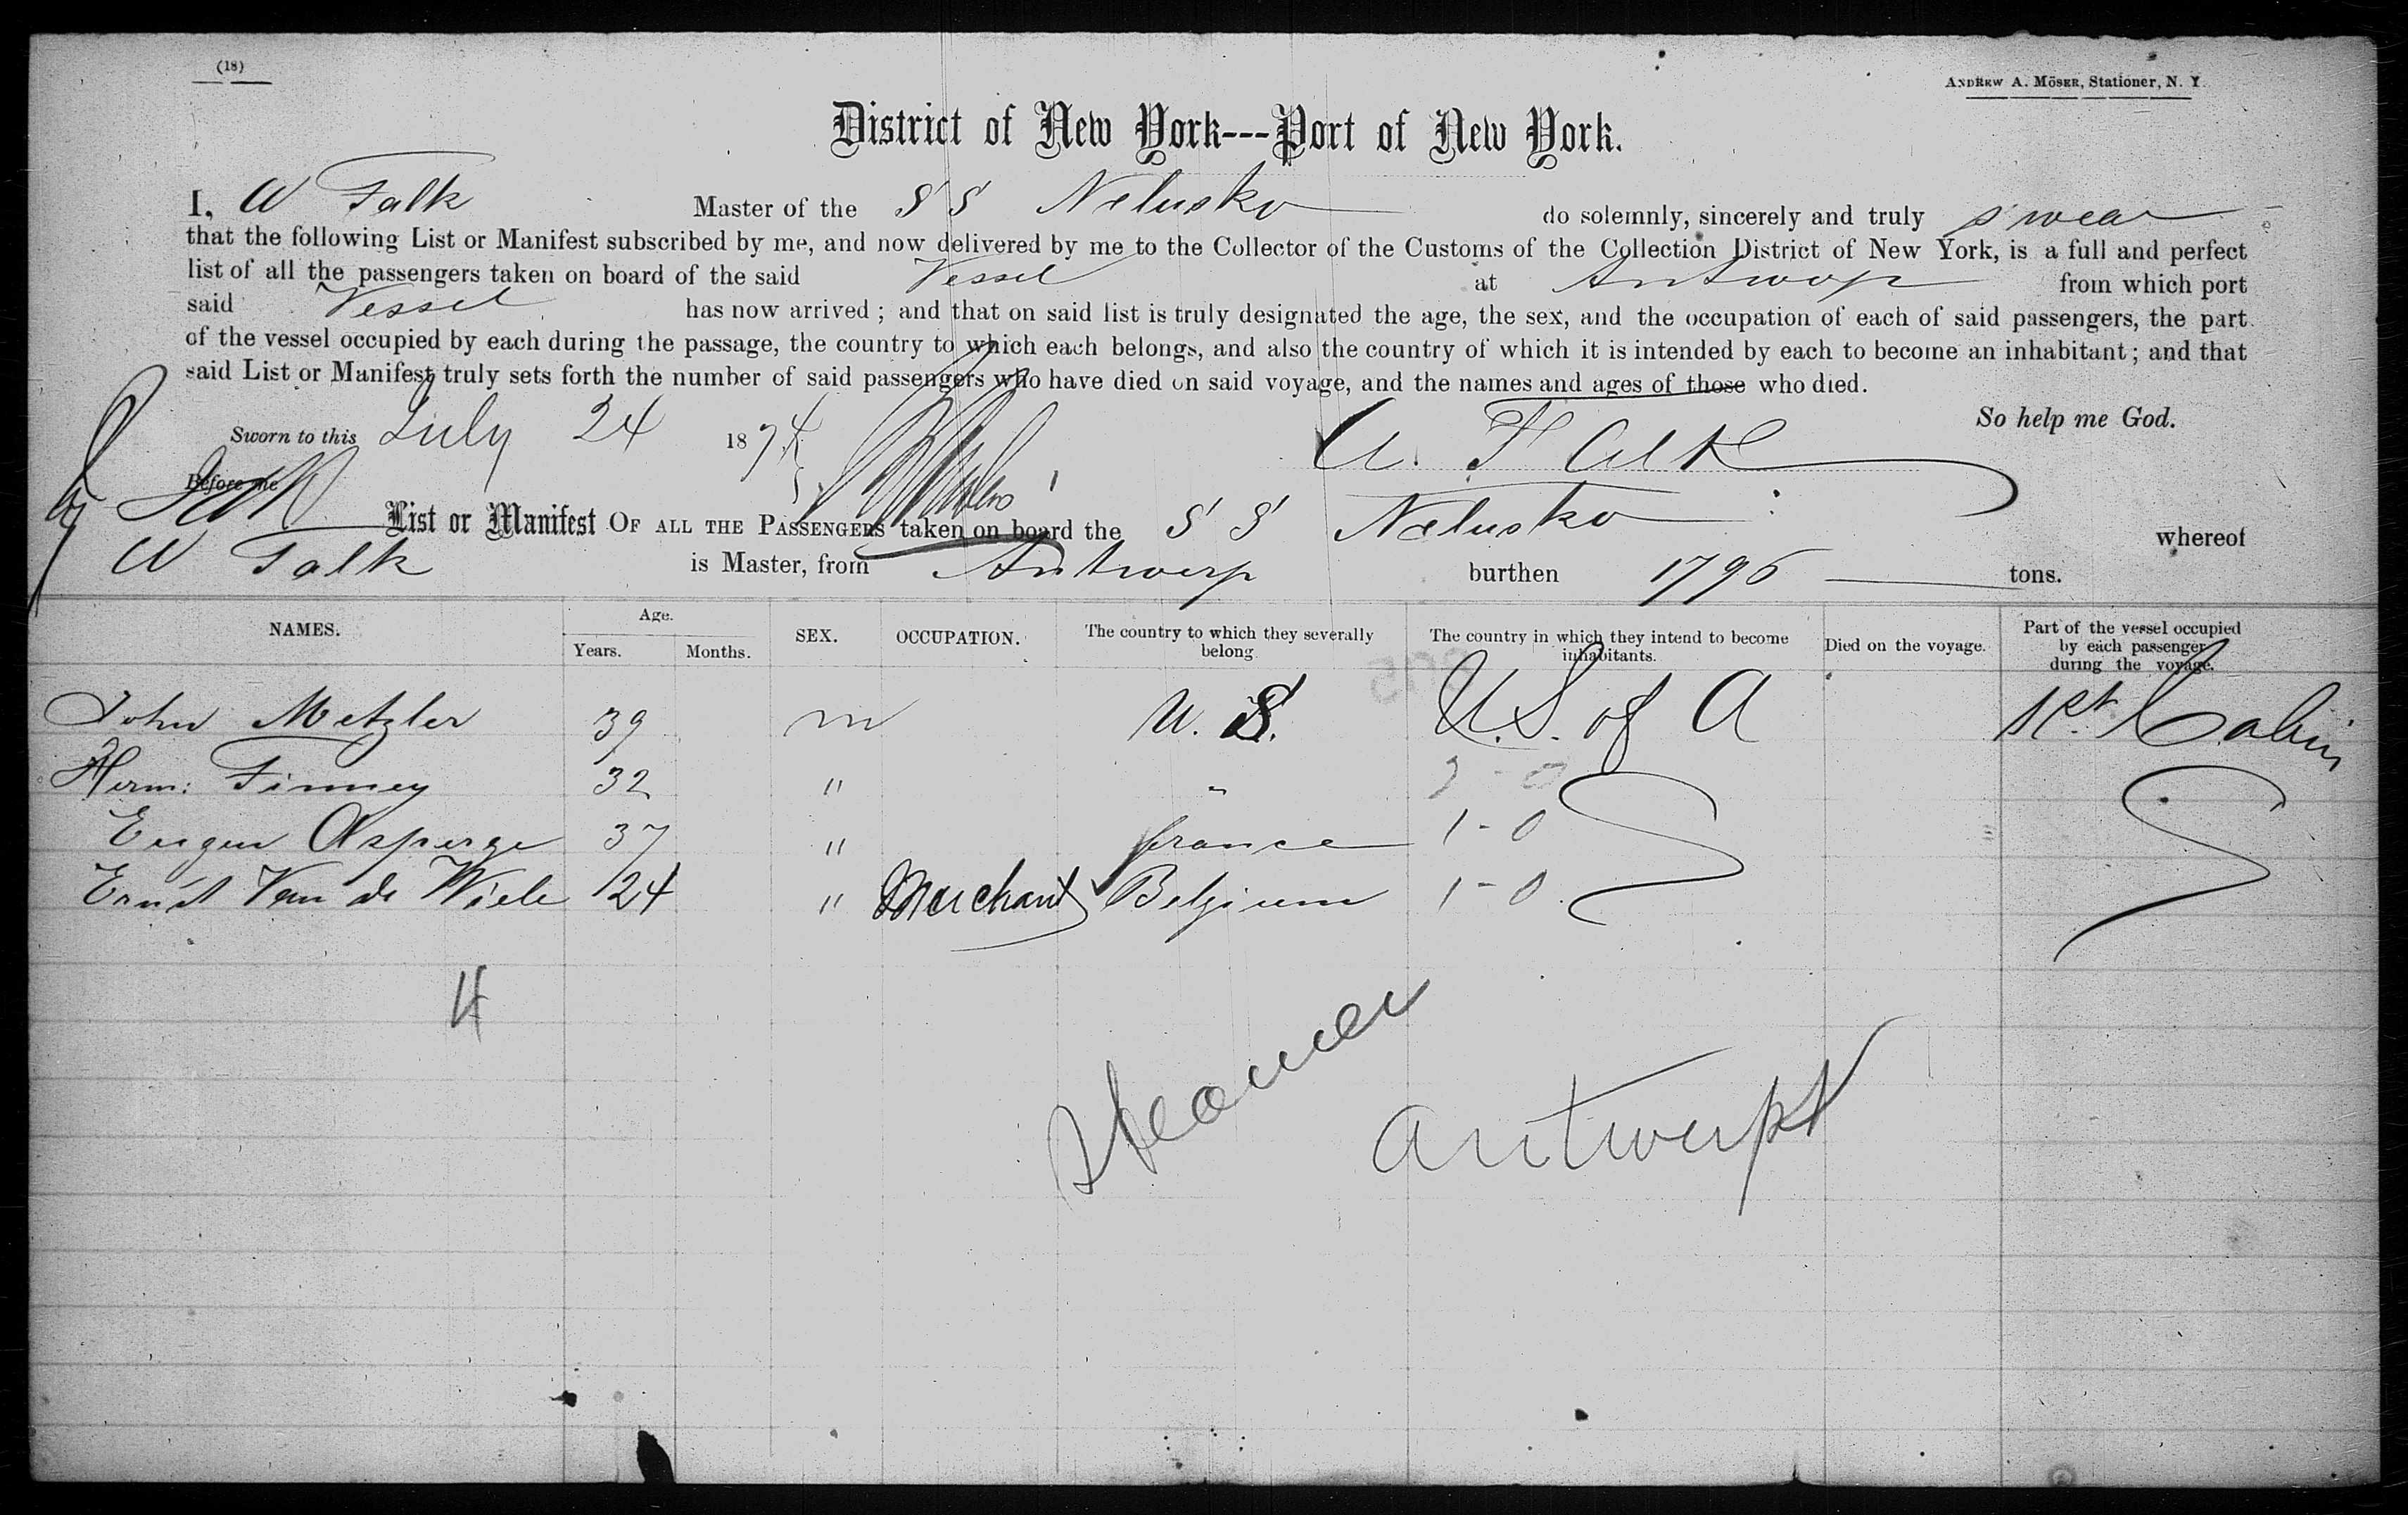 (18)
ANDREW A. MÖSER, Stationer, N. Y.
District of New York---Port of New York.
I, W Falk Master of the S S Nelusko do solemnly, sincerely and truly swear
that the following List or Manifest subscribed by me, and now delivered by me to the Collector of the Customs of the Collection District of New York, is a full and perfect
list of all the passengers taken on board of the said Vessel at Antwerp from which port
said Vessel has now arrived ; and that on said list is truly designated the age, the sex, and the occupation of each of said passengers, the part
of the vessel occupied by each during the passage, the country to which each belongs, and also the country of which it is intended by each to become an inhabitant ; and that
said List or Manifest truly sets forth the number of said passengers who have died on said voyage, and the names and ages of those who died.
So help me God.
Sworn to this July 24 1874
W. Falk
Before me
List or Manifest OF ALL THE PASSENGERS taken on board the S S Nelusko whereof
W Falk is Master, from Antwerp burthen 1796 tons.
NAMES. Age. Years. Months. SEX. OCCUPATION. The country to which they severally belong. The country in which they intend to become inhabitants. Died on the voyage. Part of the vessel occupied by each passenger during the voyage.
John Metzler 39 m U. S. U.S. of A 1st. Cabin
Herm: Finney 32 " "
Eugen Asperge 37 " france 1-0
Ernst Van de Wiele 24 " Merchant Belgium 1-0
4
Steamer
Antwerp